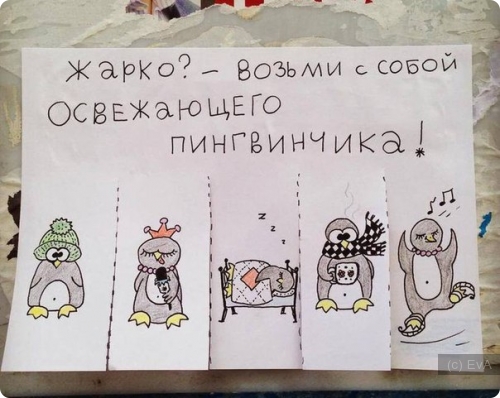 Жарко? – возьми с собой
освежающего
пингвинчика!
z
z
z
(c) EvA